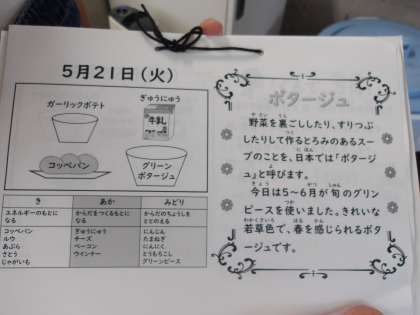 5月21日(火)
ガーリックポテト
ぎゅうにゅう
牛乳
コッペパン
グリーン
ポタージュ
き
あか
みどり
エネルギーのもとに
なる
からだをつくるもとに
なる
からだのちょうしを
ととのえる
コッペパン
ルウ
あぶら
さとう
じゃがいも
ぎゅうにゅう
チーズ
ベーコン
ウインナー
にんじん
たまねぎ
にんにく
とうもろこし
グリーンピース
ポタージュ
野菜を裏ごししたり、すりつぶ
したりして作るとろみのあるスー
プのことを、日本では「ポタージ
ュ」と呼びます。
今日は5～6月が旬のグリン
ピースを使いました。きれいな
若草色で、春を感じられるポタ
ージュです。